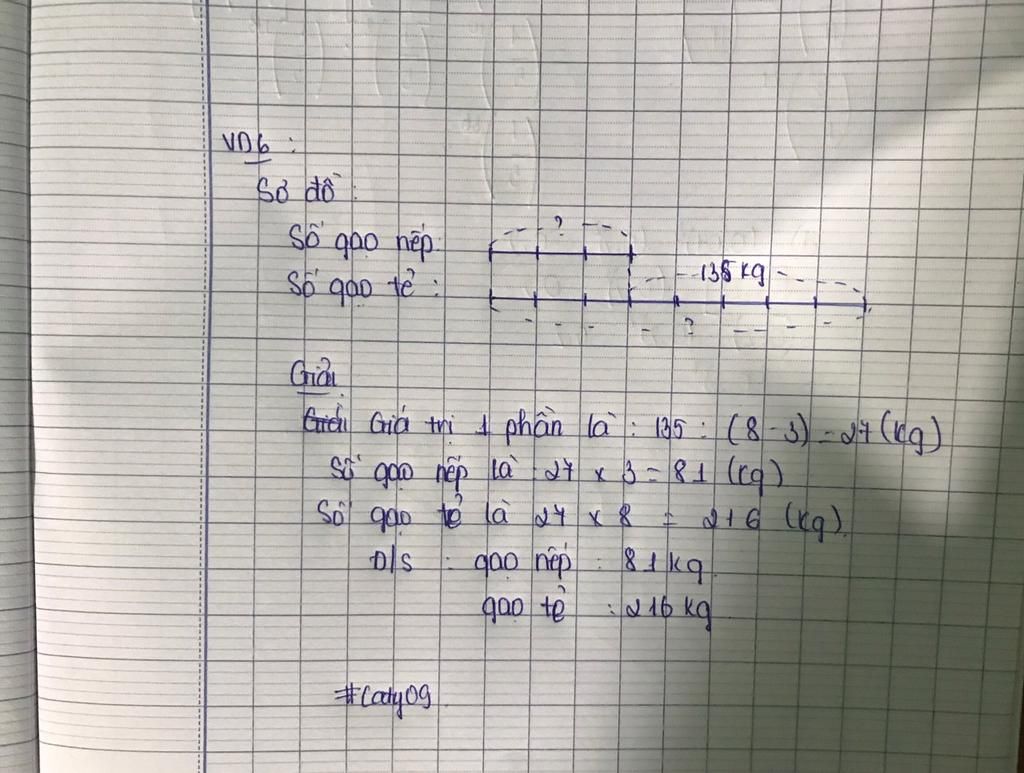 VD6 :
Sơ đồ :
?
Số gạo nếp:
135 kg
Số gạo tẻ :
?
Giải
Giá trị 1 phần là : 135 : (8 - 3) = 27 (kg)
Số gạo nếp là 27 x 3 = 81 (kg)
Số gạo tẻ là 27 x 8 = 216 (kg)
Đ/S : gạo nếp : 81 kg
gạo tẻ : 216 kg
#Cady09